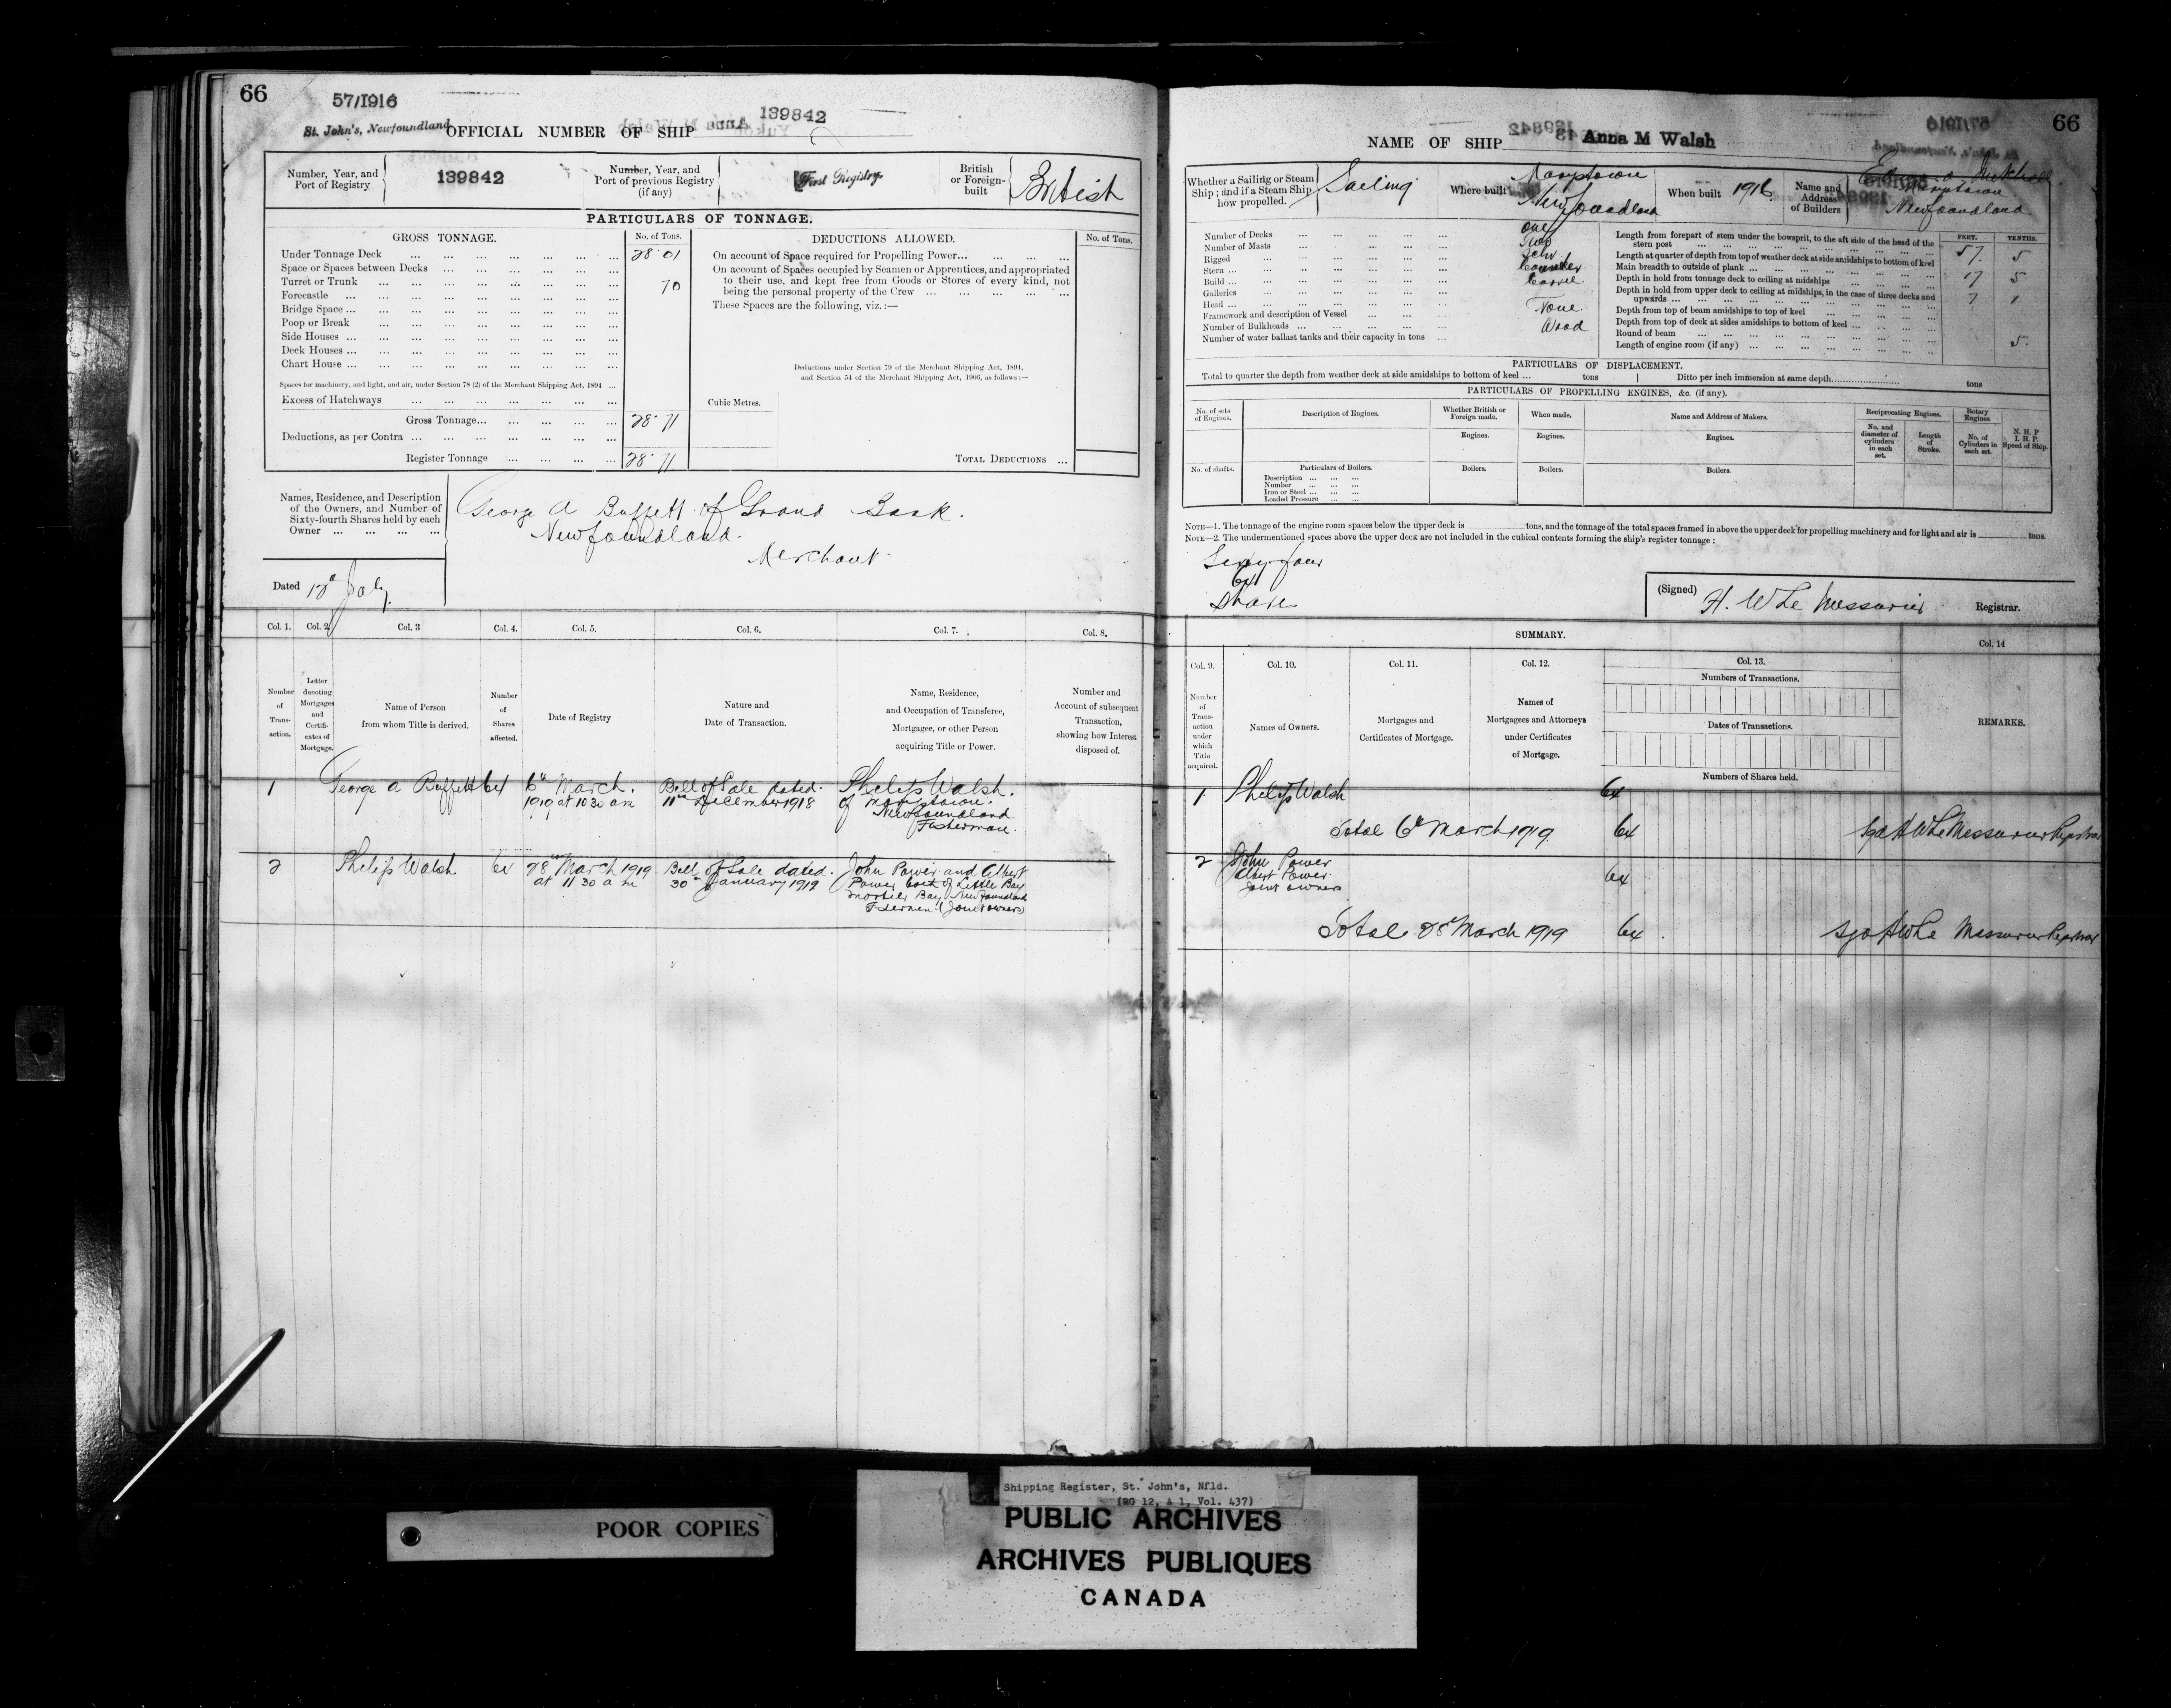 66
57/1916
St. John's, Newfoundland
OFFICIAL NUMBER OF SHIP 139842
Number, Year, and Port of Registry
139842
Number, Year, and Port of previous Registry (if any)
First Registry
British or Foreign-built
British
PARTICULARS OF TONNAGE.
GROSS TONNAGE.
No. of Tons.
Under Tonnage Deck 28.01
Space or Spaces between Decks
Turret or Trunk 70
Forecastle
Bridge Space
Poop or Break
Side Houses
Deck Houses
Chart House
Spaces for machinery, and light, and air, under Section 78 (2) of the Merchant Shipping Act, 1894
Excess of Hatchways
Gross Tonnage 28.71
Deductions, as per Contra
Register Tonnage 28.71
DEDUCTIONS ALLOWED.
No. of Tons.
On account of Space required for Propelling Power
On account of Spaces occupied by Seamen or Apprentices, and appropriated
to their use, and kept free from Goods or Stores of every kind, not
being the personal property of the Crew
These Spaces are the following, viz.:—
Deductions under Section 79 of the Merchant Shipping Act, 1894,
and Section 54 of the Merchant Shipping Act, 1906, as follows:—
Cubic Metres.
TOTAL DEDUCTIONS
Names, Residence, and Description
of the Owners, and Number of
Sixty-fourth Shares held by each
Owner
George A Buffett of Grand Bank.
Newfoundland.
Merchant
Dated 12th July
Col. 1. Col. 2. Col. 3 Col. 4. Col. 5. Col. 6. Col. 7. Col. 8.
Number of Trans- action.
Letter denoting Mortgages and Certifi- cates of Mortgage.
Name of Person from whom Title is derived.
Number of Shares affected.
Date of Registry
Nature and Date of Transaction.
Name, Residence, and Occupation of Transferee, Mortgagee, or other Person acquiring Title or Power.
Number and Account of subsequent Transaction, showing how Interest disposed of.
1 George A Buffett 64
6th March.
1919 at 10 30 am
Bill of Sale dated
11th December 1918
Philip Walsh.
of Marystown.
Newfoundland
Fisherman.
2 Philip Walsh 64
28th March 1919
at 11 30 a m
Bill of Sale dated
30th January 1919
John Power and Albert
Power both of Little Bay
Mortier Bay Newfoundland
Fishermen (Joint owners)
66
NAME OF SHIP Anna M Walsh
Whether a Sailing or Steam Ship; and if a Steam Ship how propelled.
Sailing
Where built
Marystown
Newfoundland
When built
1916
Name and Address of Builders
Marystown
Newfoundland
Number of Decks One
Number of Masts Two
Rigged Schr
Stern Counter
Build Carvel
Galleries
Head None
Framework and description of Vessel Wood
Number of Bulkheads
Number of water ballast tanks and their capacity in tons
FEET. TENTHS.
Length from forepart of stem under the bowsprit, to the aft side of the head of the
stern post 57. 5
Length at quarter of depth from top of weather deck at side amidships to bottom of keel
Main breadth to outside of plank 17 5
Depth in hold from tonnage deck to ceiling at midships 7 1
Depth in hold from upper deck to ceiling at midships, in the case of three decks and
upwards
Depth from top of beam amidships to top of keel
Depth from top of deck at sides amidships to bottom of keel
Round of beam 5.
Length of engine room (if any)
PARTICULARS OF DISPLACEMENT.
Total to quarter the depth from weather deck at side amidships to bottom of keel ... tons
Ditto per inch immersion at same depth tons
PARTICULARS OF PROPELLING ENGINES, &c. (if any).
No. of sets of Engines.
Description of Engines.
Whether British or Foreign made.
When made.
Name and Address of Makers.
Reciprocating Engines.
Rotary Engines
N. H. P
I. H. P.
Speed of Ship.
Engines. Engines. Engines.
No. and diameter of cylinders in each set.
Length of Stroke.
No. of Cylinders in each set.
No. of shafts.
Particulars of Boilers.
Boilers. Boilers. Boilers.
Description
Number
Iron or Steel
Loaded Pressure
NOTE—1. The tonnage of the engine room spaces below the upper deck is tons, and the tonnage of the total spaces framed in above the upper deck for propelling machinery and for light and air is tons.
NOTE—2. The undermentioned spaces above the upper deck are not included in the cubical contents forming the ship's register tonnage:
Sixty four
64
Shares
(Signed) H. W Le Messurier Registrar.
SUMMARY.
Col. 9. Col. 10. Col. 11. Col. 12. Col. 13. Col. 14
Number of Trans- action under which Title acquired.
Names of Owners.
Mortgages and Certificates of Mortgage.
Names of Mortgagees and Attorneys under Certificates of Mortgage.
Numbers of Transactions.
Dates of Transactions.
Numbers of Shares held.
REMARKS.
1 Philip Walsh 64
Total 6th March 1919 64 Sgd H W Le Messurier Registrar
2 John Power
Albert Power
Joint owners
64
Total 28th March 1919 64 Sgd H W Le Messurier Registrar
POOR COPIES
Shipping Register, St. John's, Nfld.
(RG 12, A 1, Vol. 437)
PUBLIC ARCHIVES
ARCHIVES PUBLIQUES
CANADA